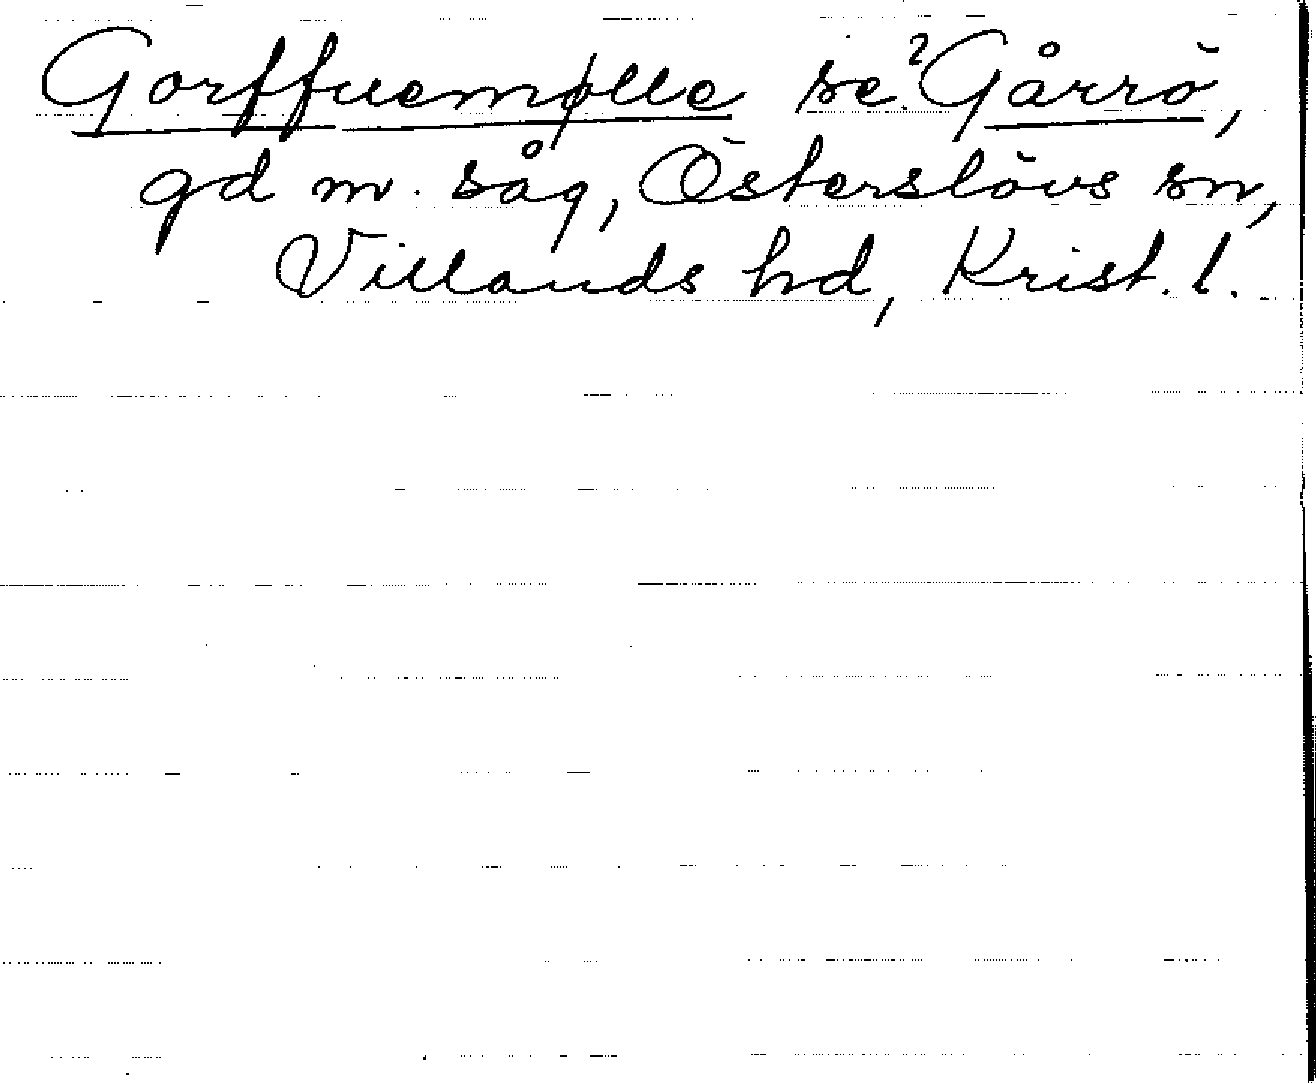 Gorffuemølle se ²Gårrö,
gd m. såg, Österslövs sn,
Villands hd, Krist. l.